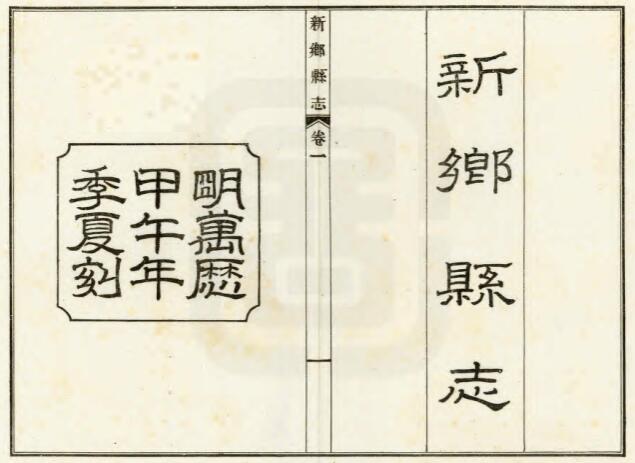 新鄉縣志
新鄉縣志 卷一
明萬歷
甲午年
季夏刻